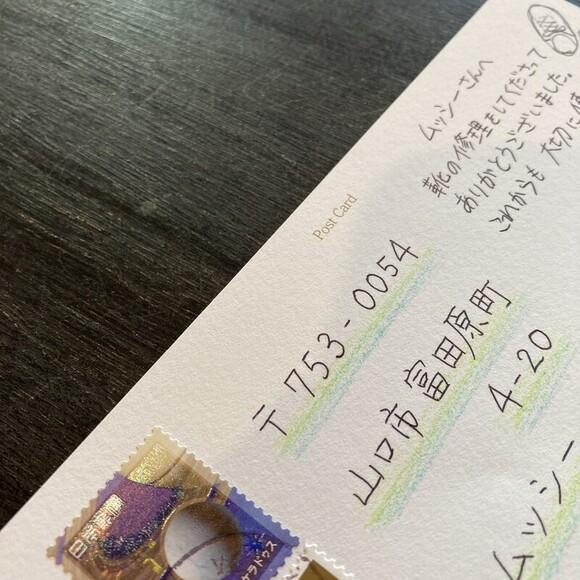 ムッシーさんへ
靴の修理をしてくださって
ありがとうございました。
これからも 大切に
Post Card
〒753-0054
山口市富田原町
4-20
ムッシー
日本郵便
ケラドゥス